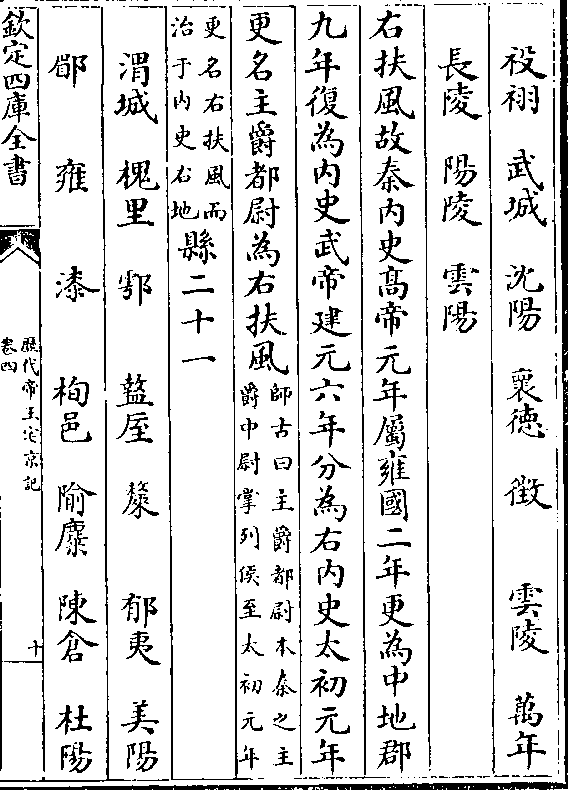 祋祤 武城 沈陽 襄徳 徴 雲陵 萬年
長陵 陽陵 雲陽
右扶風故秦内史髙帝元年屬雍國二年更為中地郡
九年復為内史武帝建元六年分為右内史太初元年
更名主爵都尉為右扶風師古曰主爵都尉本秦之主
爵中尉掌列侯至太初元年
更名右扶風而
治于内史右地縣二十一
渭城 槐里 鄠 盩厔 斄 郁夷 美陽
郿 雍 漆 栒邑 隃麋 陳倉 杜陽
欽定四庫全書
歴代帝王宅京記
卷四
十